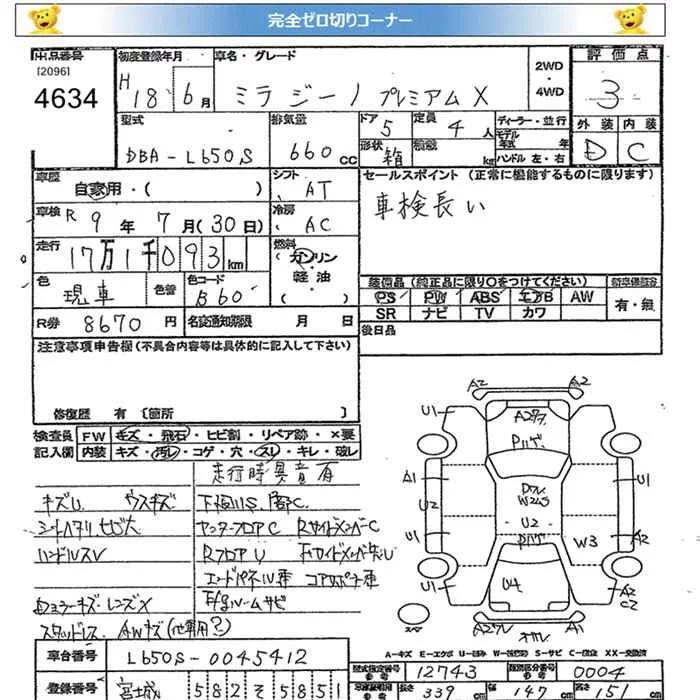 完全ゼロ切りコーナー
出品番号
[2096]
4634
初度登録年月
H 18年 6月
車名・グレード
ミラジーノ プレミアムX
2WD
・
4WD
評価点
3
外装 内装
D C
型式
DBA-L650S
排気量
660 cc
ドア 5
形状 箱
定員 4 人
積載 kg
ディーラー・並行
モデル年式 年
ハンドル 左・右
車歴
自家用・( )
シフト
AT
車検 R 9年 7月(30日)
冷房
AC
走行 17万1千093 km
燃料
ガソリン
軽油
( )
色
現車
色替
色コード
B60
R券 8670 円
名変通知期限 月 日
セールスポイント (正常に機能するものに限ります)
車検長い
装備品 (純正品に限り○をつけてください)
PS PW ABS エアB AW
SR ナビ TV カワ
新車保証書
有・無
後日品
注意事項申告欄(不具合内容等は具体的に記入して下さい)
修復歴 有 [箇所 ]
検査員記入欄
FW キズ・飛石・ヒビ割・リペア跡・×要
内装 キズ・汚レ・コゲ・穴・スレ・キレ・破レ
走行時異音有
キズU ウスキズ
シートヘタリ、ヒビ大
ハンドルスV
ヤンターフロアC RサイドメンバーC
RフロアU
コアサポート歪
スタッドレス AWキズ(他車用?)
A2 A2
U1 U1
P ハゲ
A1 U1
U2
W2S
U2
P ハゲ
W3 A2
U1
U4
A2
C2
A1
スペア
A-キズ E-エクボ U-凹み W-波打ち S-サビ C-腐食 XX-交換済
車台番号
L650S-0045412
登録番号
宮城 582 そ 5851
型式指定番号 12743
類別区分番号 0004
長さ 339 cm
幅 147 cm
高さ 151